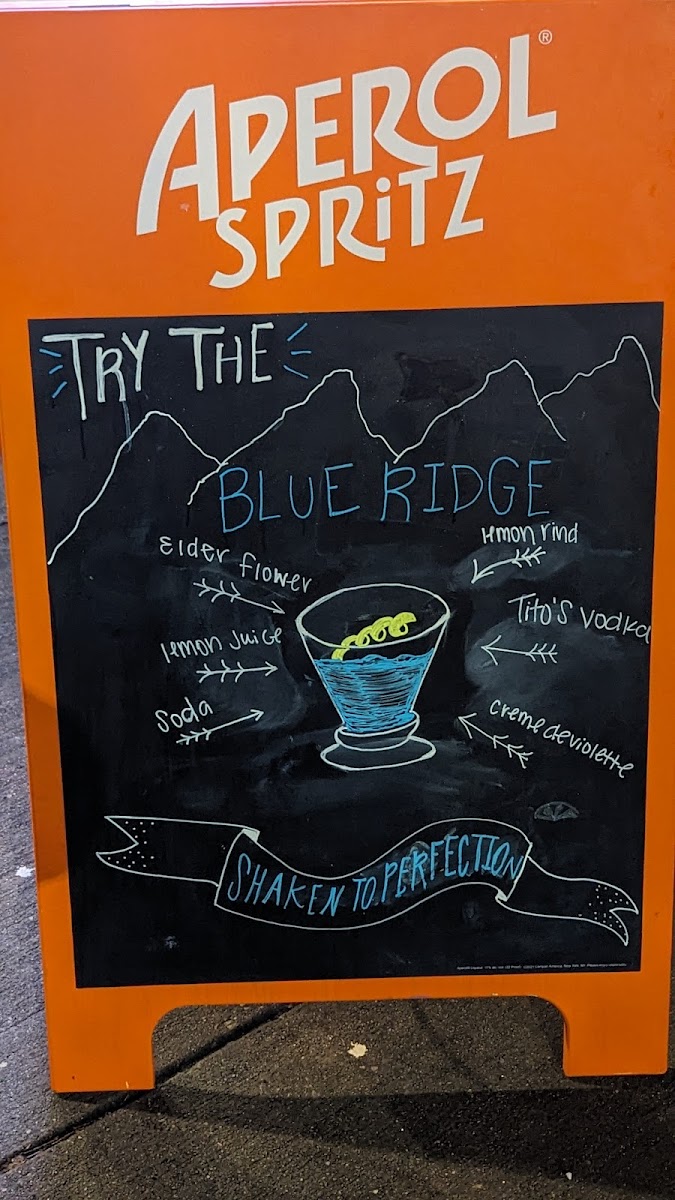 APEROL®
SPRiTZ
TRY THE
BLUE RIDGE
Elder flower
lemon rind
Tito's vodka
lemon juice
Soda
creme de violette
SHAKEN TO PERFECTION